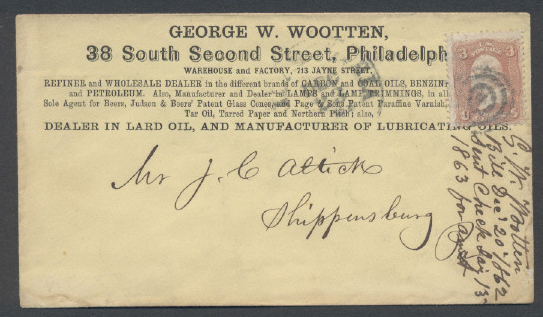 GEORGE W. WOOTTEN,
38 South Second Street, Philadelph
WAREHOUSE and FACTORY, 713 JAYNE STREET,
REFINER and WHOLESALE DEALER in the different brands of CARBON and COAL OILS, BENZIN
and PETROLEUM. Also, Manufacturer and Dealer in LAMPS and LAMP TRIMMINGS, in all
Sole Agent for Beers, Judson & Beers' Patent Glass Cones, and Page's Patent Paraffine Varnish,
Tar Oil, Tarred Paper and Northern Pitch; also,
DEALER IN LARD OIL, AND MANUFACTURER OF LUBRICATING OILS.
3 3
Mr J. C. Altick
Shippensburg
G. W. Wootten
Bill Dec 20 1862
Sent Check Jan 13
1863 for